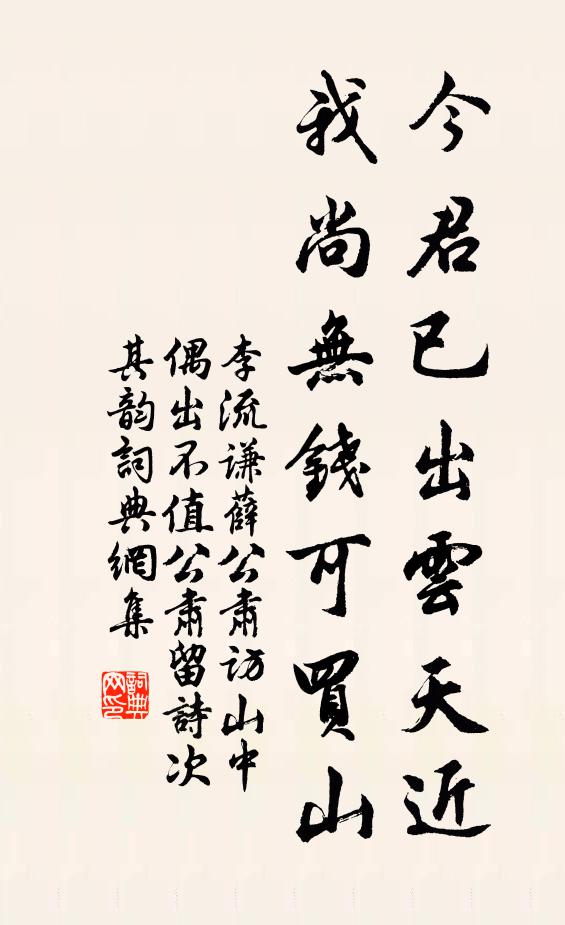 今君已出雲天近
我尚無錢可買山
李流谦薛公肅访山中
偶出不值公肅留詩次
其韵詞典網集
詞典
网印